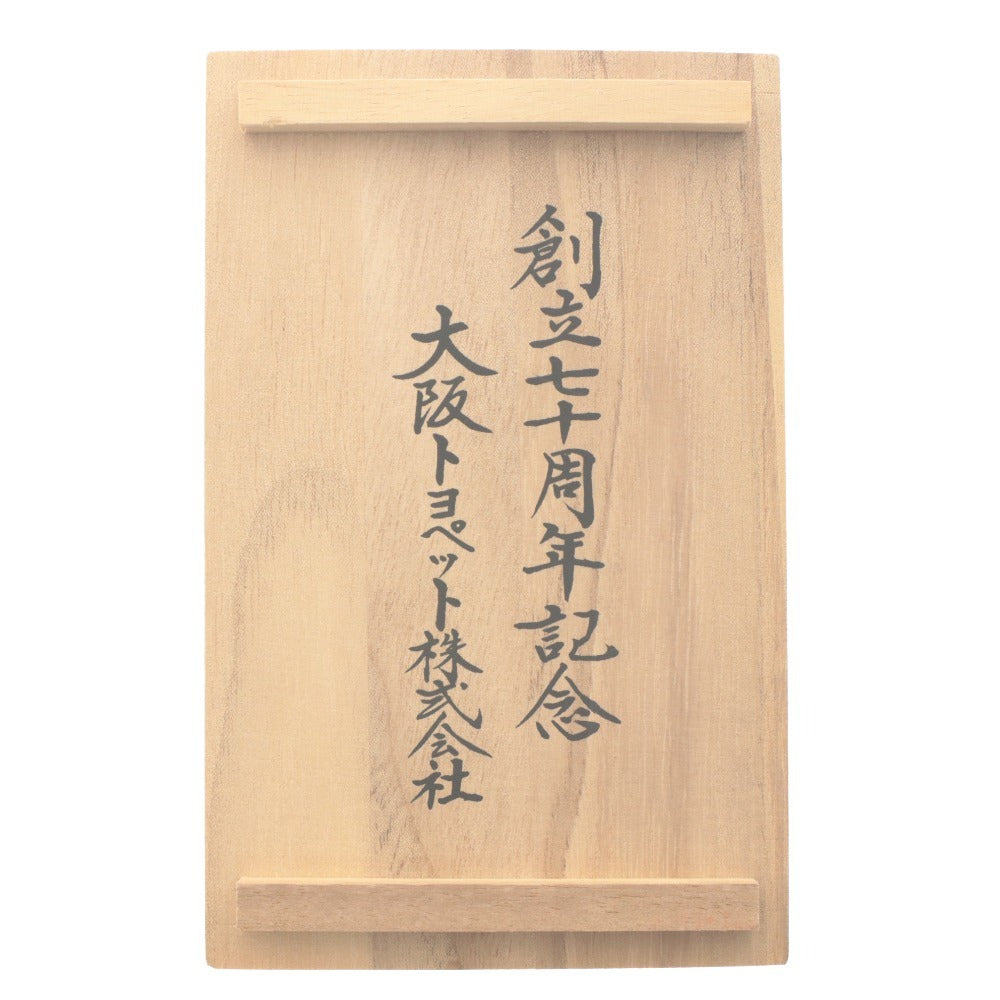 創立七十周年記念
大阪トヨペット株式会社